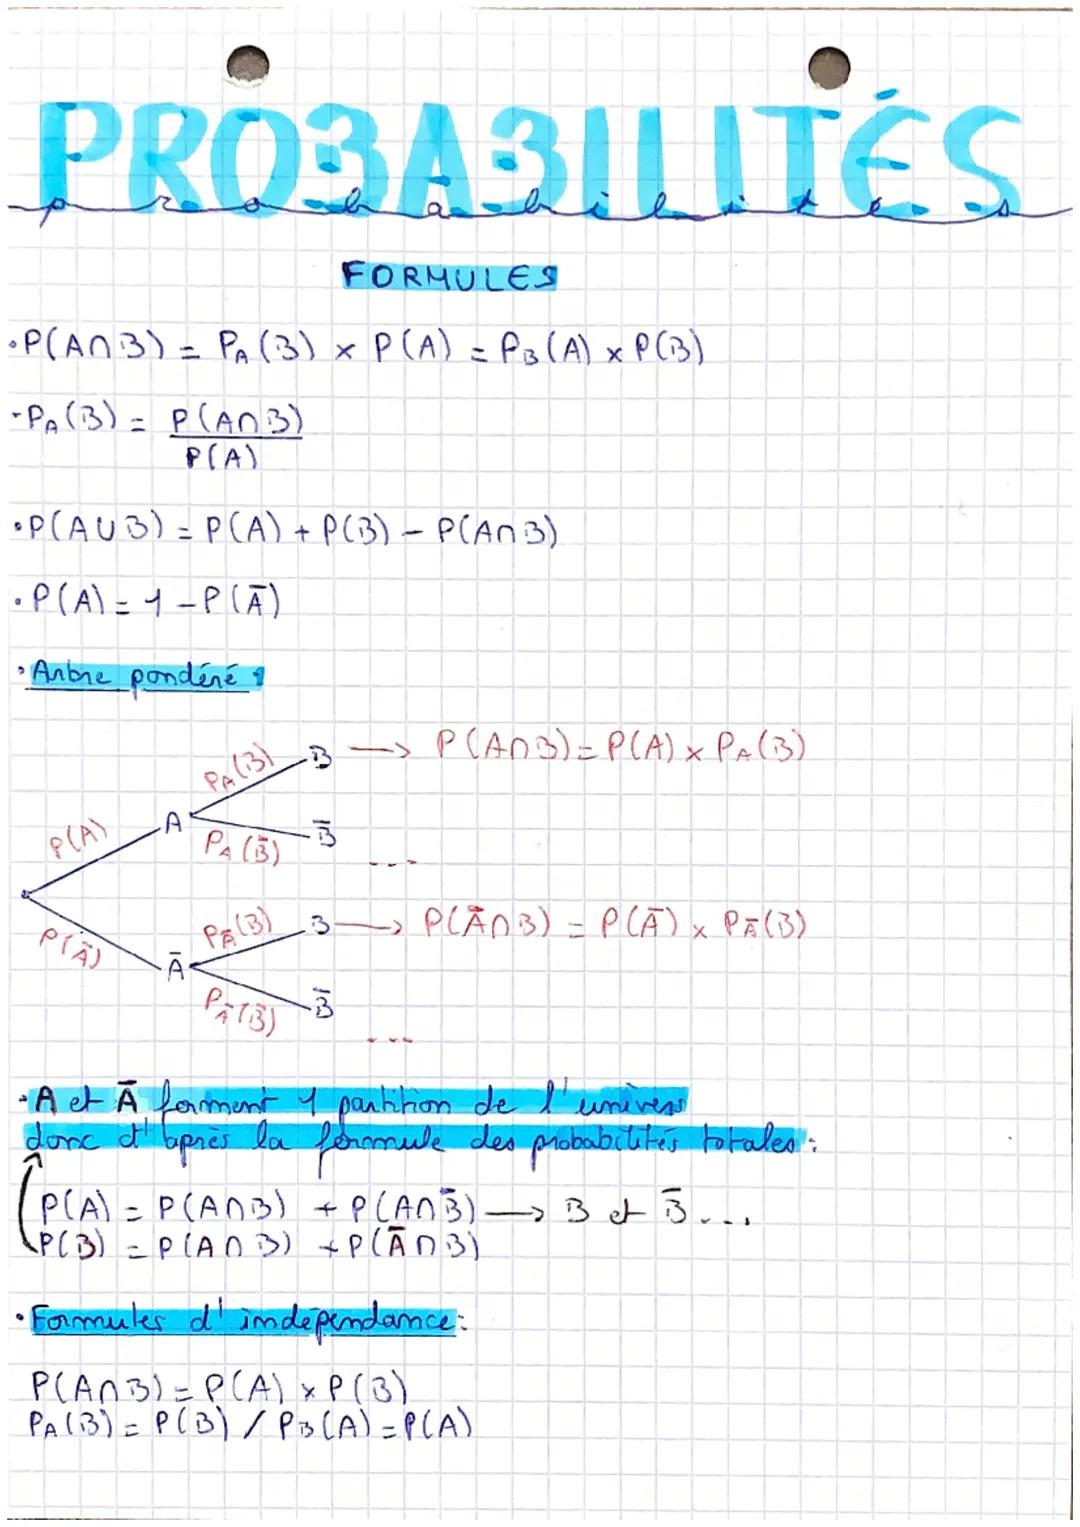 PROBABILITÉS
probabilites
FORMULES
•P(A∩B) = PA(B) × P(A) = PB(A) × P(B)
-PA(B) = P(A∩B)
P(A)
•P(A∪B) = P(A) + P(B) - P(A∩B)
•P(A) = 1 - P(Ā)
•Arbre pondéré :
PA(B) B → P(A∩B) = P(A) × PA(B)
P(A) A
PA(B̄) B̄ ...
PĀ(B) B → P(Ā∩B) = P(Ā) × PĀ(B)
P(Ā) Ā
PĀ(B̄) B̄ ...
•A et Ā forment 1 partition de l'univers
donc d'après la formule des probabilités totales :
P(A) = P(A∩B) + P(A∩B̄) → B et B̄...
P(B) = P(A∩B) + P(Ā∩B)
•Formules d'indépendance :
P(A∩B) = P(A) × P(B)
PA(B) = P(B) / PB(A) = P(A)